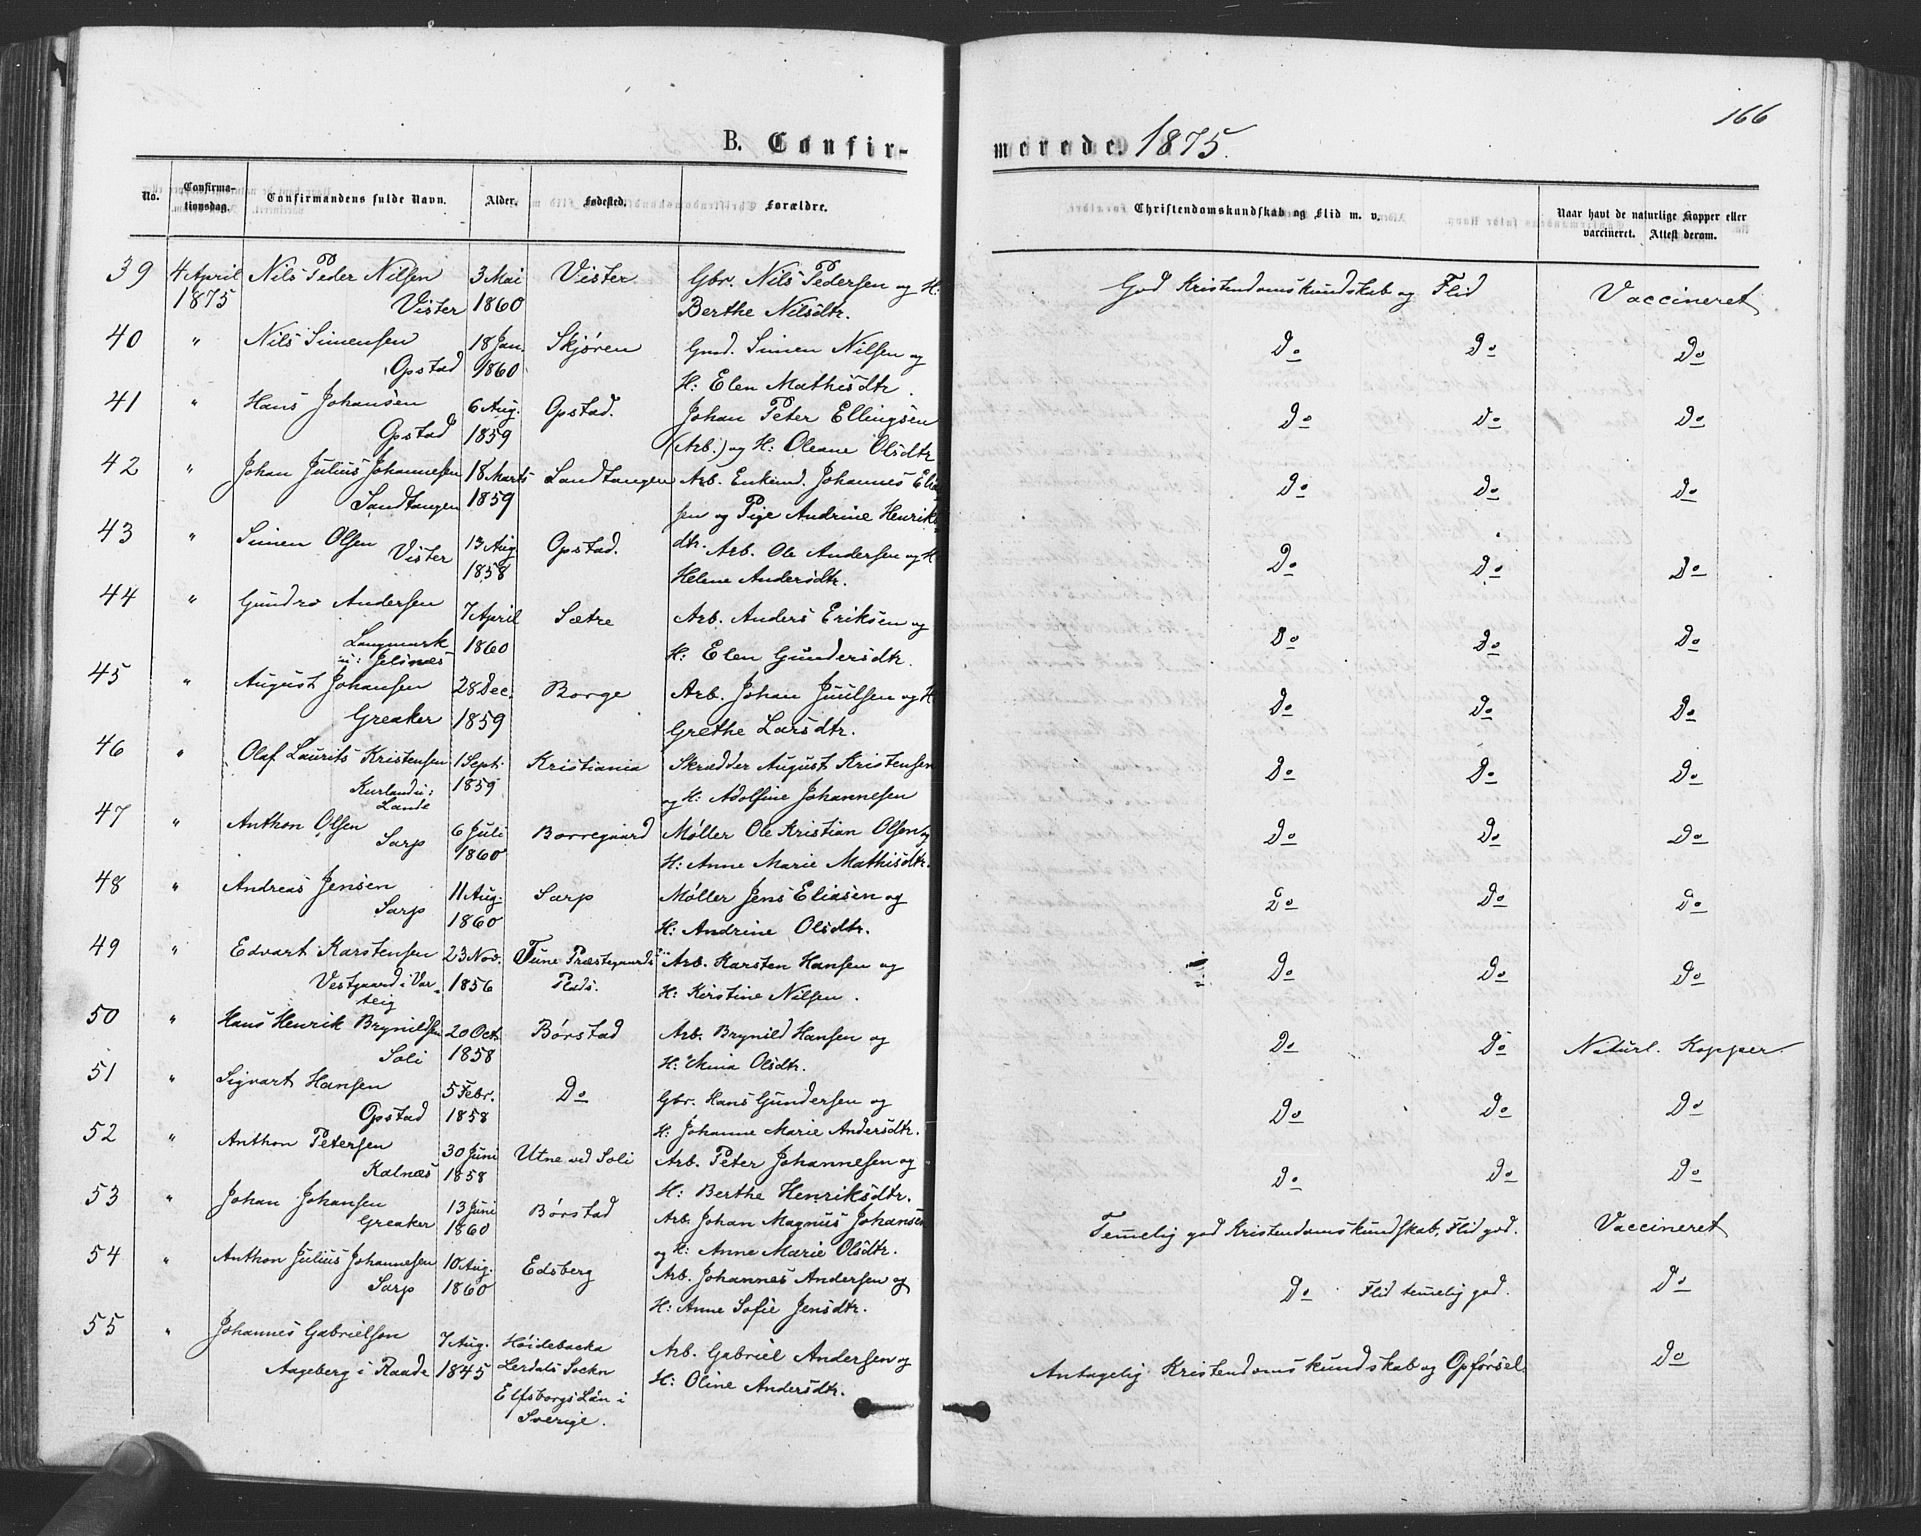 166
B. Confir-
merede. 1875.
No. Confirma-tionsdag. Confirmandens fulde Navn. Alder. Fødested. Forældre. Christendomskundskab og Flid m. v. Naar havt de naturlige Kopper eller vaccineret. Attest derom.
39 4 April Nils Peder Nilsen 3 Mai Vister Gbr. Nils Pedersen og H: God Kristendomskundskab og Flid Vaccineret
1875 Vister 1860 Berthe Nilsdtr.
40 " Nils Simensen 18 Jan. Skjøren Gmd. Simen Nilsen og Do Do Do
Opstad 1860 H: Elen Mathisdtr.
41 " Hans Johansen 6 Aug. Opstad. Johan Peter Ellingsen Do Do Do
Opstad 1859 (Arb.) og H: Oleane Olsdtr
42 " Johan Julius Johannesen 18 Marts Sandtangen Arb. Enkemd. Johannes Elia Do Do Do
Sandtangen 1859 sen og Pige Andrine Henriks
43 " Simen Olsen 13 Aug. Opstad. dtr. Arb. Ole Andersen og H Do Do Do
Vister 1858 Helene Andersdtr.
44 " Gundro Andersen 7 April Sætre Arb. Anders Eriksen og Do Do Do
Langmark 1860 H: Elen Gundersdtr.
u: Jelsnes
45 " August Johansen 28 Dec. Borge Arb. Johan Juulsen og H Do Do Do
Greaker 1859 Grethe Larsdtr.
46 " Olaf Laurits Kristensen 1 Sept. Kristiania Skrædder August Kristensen Do Do Do
Kurland u: 1859 og H: Adolfine Johannesen
Lande
47 " Anthon Olsen 6 Juli Borregaard Møller Ole Kristian Olsen og Do Do Do
Sarp 1860 H: Anne Marie Mathisdtr.
48 " Andreas Jensen 11 Aug. Sarp Møller Jens Eliasen og Do Do Do
Sarp 1860 H: Andrine Olsdtr.
49 " Edvart Karstensen 23 Nov. Tune Præstegaards Arb. Karsten Hansen og Do Do Do
Vestgaard i Var- 1856 Plads. H: Kirstine Nilsen.
teig
50 " Hans Henrik Brynildsen 20 Oct. Børstad Arb. Brynild Hansen og Do Do Naturl. Kopper.
Soli 1858 H: Mina Olsdtr.
51 " Sigvart Hansen 5 Febr. Do Gbr. Hans Gundersen og Do Do Do
Opstad 1858 H: Johanne Marie Andersdtr.
52 " Anthon Petersen 30 Juni Utne ved Soli Arb. Peter Johannesen og Do Do Do
Kalnæs 1858 H: Berthe Henriksdtr.
53 " Johan Johansen 13 Juni Børstad Arb. Johan Magnus Johansen Temelig god Kristendomskundskab, Flid god. Vaccineret
Greaker 1860 og H: Anne Marie Olsdtr.
54 " Anthon Julius Johannesen 10 Aug. Edsberg Arb. Johannes Andersen og Do Flid temelig god. Do
Sarp 1860 H: Anne Sofie Jensdtr.
55 " Johannes Gabrielson 7 Aug. Höidebacka Arb. Gabriel Andersen og Antagelig Kristendomskundskab og Opførsel Do
Aageberg i Raade 1845 Lerdals Sockn H: Oline Andersdtr.
Elfsborgs Län i
Sverige.